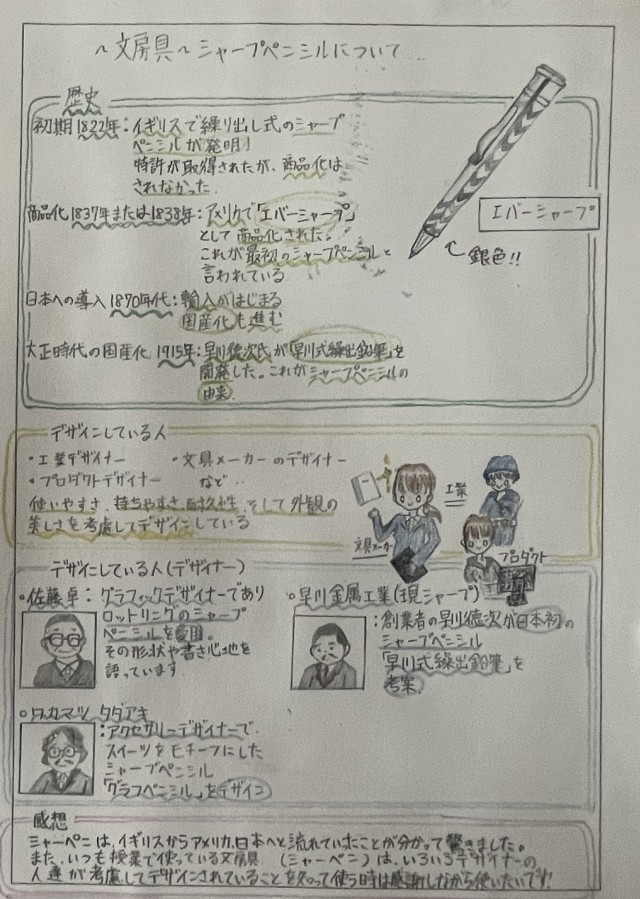 ～文房具～シャープペンシルについて
歴史
初期1822年:イギリスで繰り出し式のシャープ
ペンシルが発明!
特許が取得されたが、商品化は
されなかった
商品化1837年または1838年:アメリカで「エバーシャープ」
として商品化された。
これが最初のシャープペンシルと
言われている
エバーシャープ
銀色!!
日本への導入1870年代:輸入がはじまる
国産化も進む
大正時代の国産化 1915年:早川徳次氏が「早川式繰出鉛筆」を
開発した。これがシャープペンシルの
由来
デザインしている人
・工業デザイナー ・文具メーカーのデザイナー
・プロダクトデザイナー など‥
使いやすさ、持ちやすさ、耐久性、そして外観の
美しさを考慮してデザインしている
工業
文具メーカー
プロダクト
デザインしている人(デザイナー)
○佐藤卓:グラフィックデザイナーであり
ロットリングのシャープ
ペンシルを愛用。
その形状や書き心地を
語っています
○早川金属工業(現シャープ)
:創業者の早川徳次が日本初の
シャープペンシル
「早川式繰出鉛筆」を
考案
○タカマツ タダアキ
:アクセサリーデザイナーで
スイーツをモチーフにした
シャープペンシル
「グラフペンシル」をデザイン
感想
シャーペンは、イギリスからアメリカ、日本へと流れていったことが分かって驚きました。
また、いつも授業で使っている文房具 (シャーペン)は、いろいろデザイナーの
人達が考慮してデザインされていることを知って使う時は感謝しながら使いたいです!